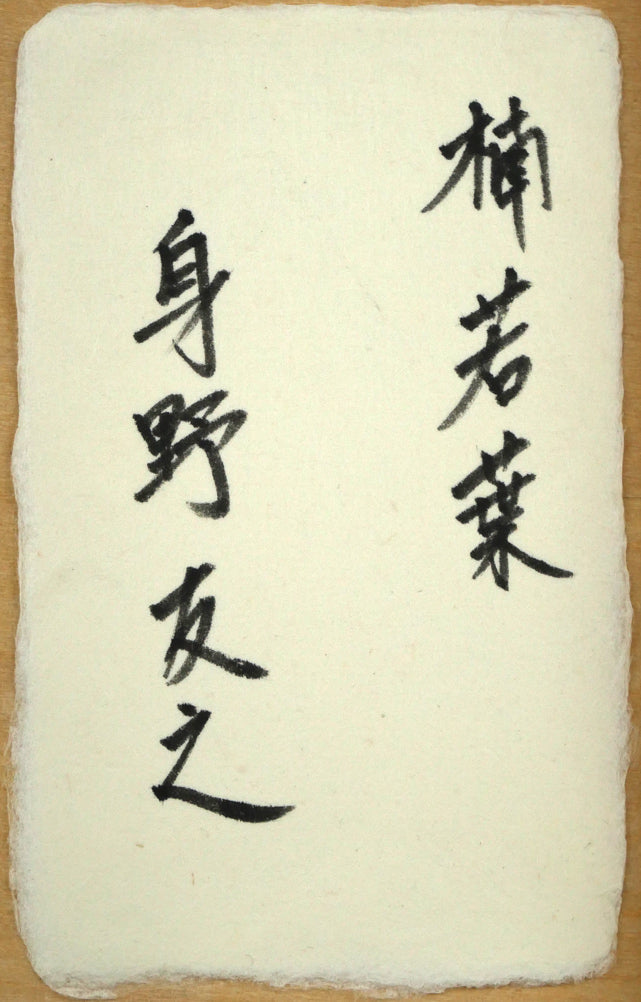 楠若葉
身野友之